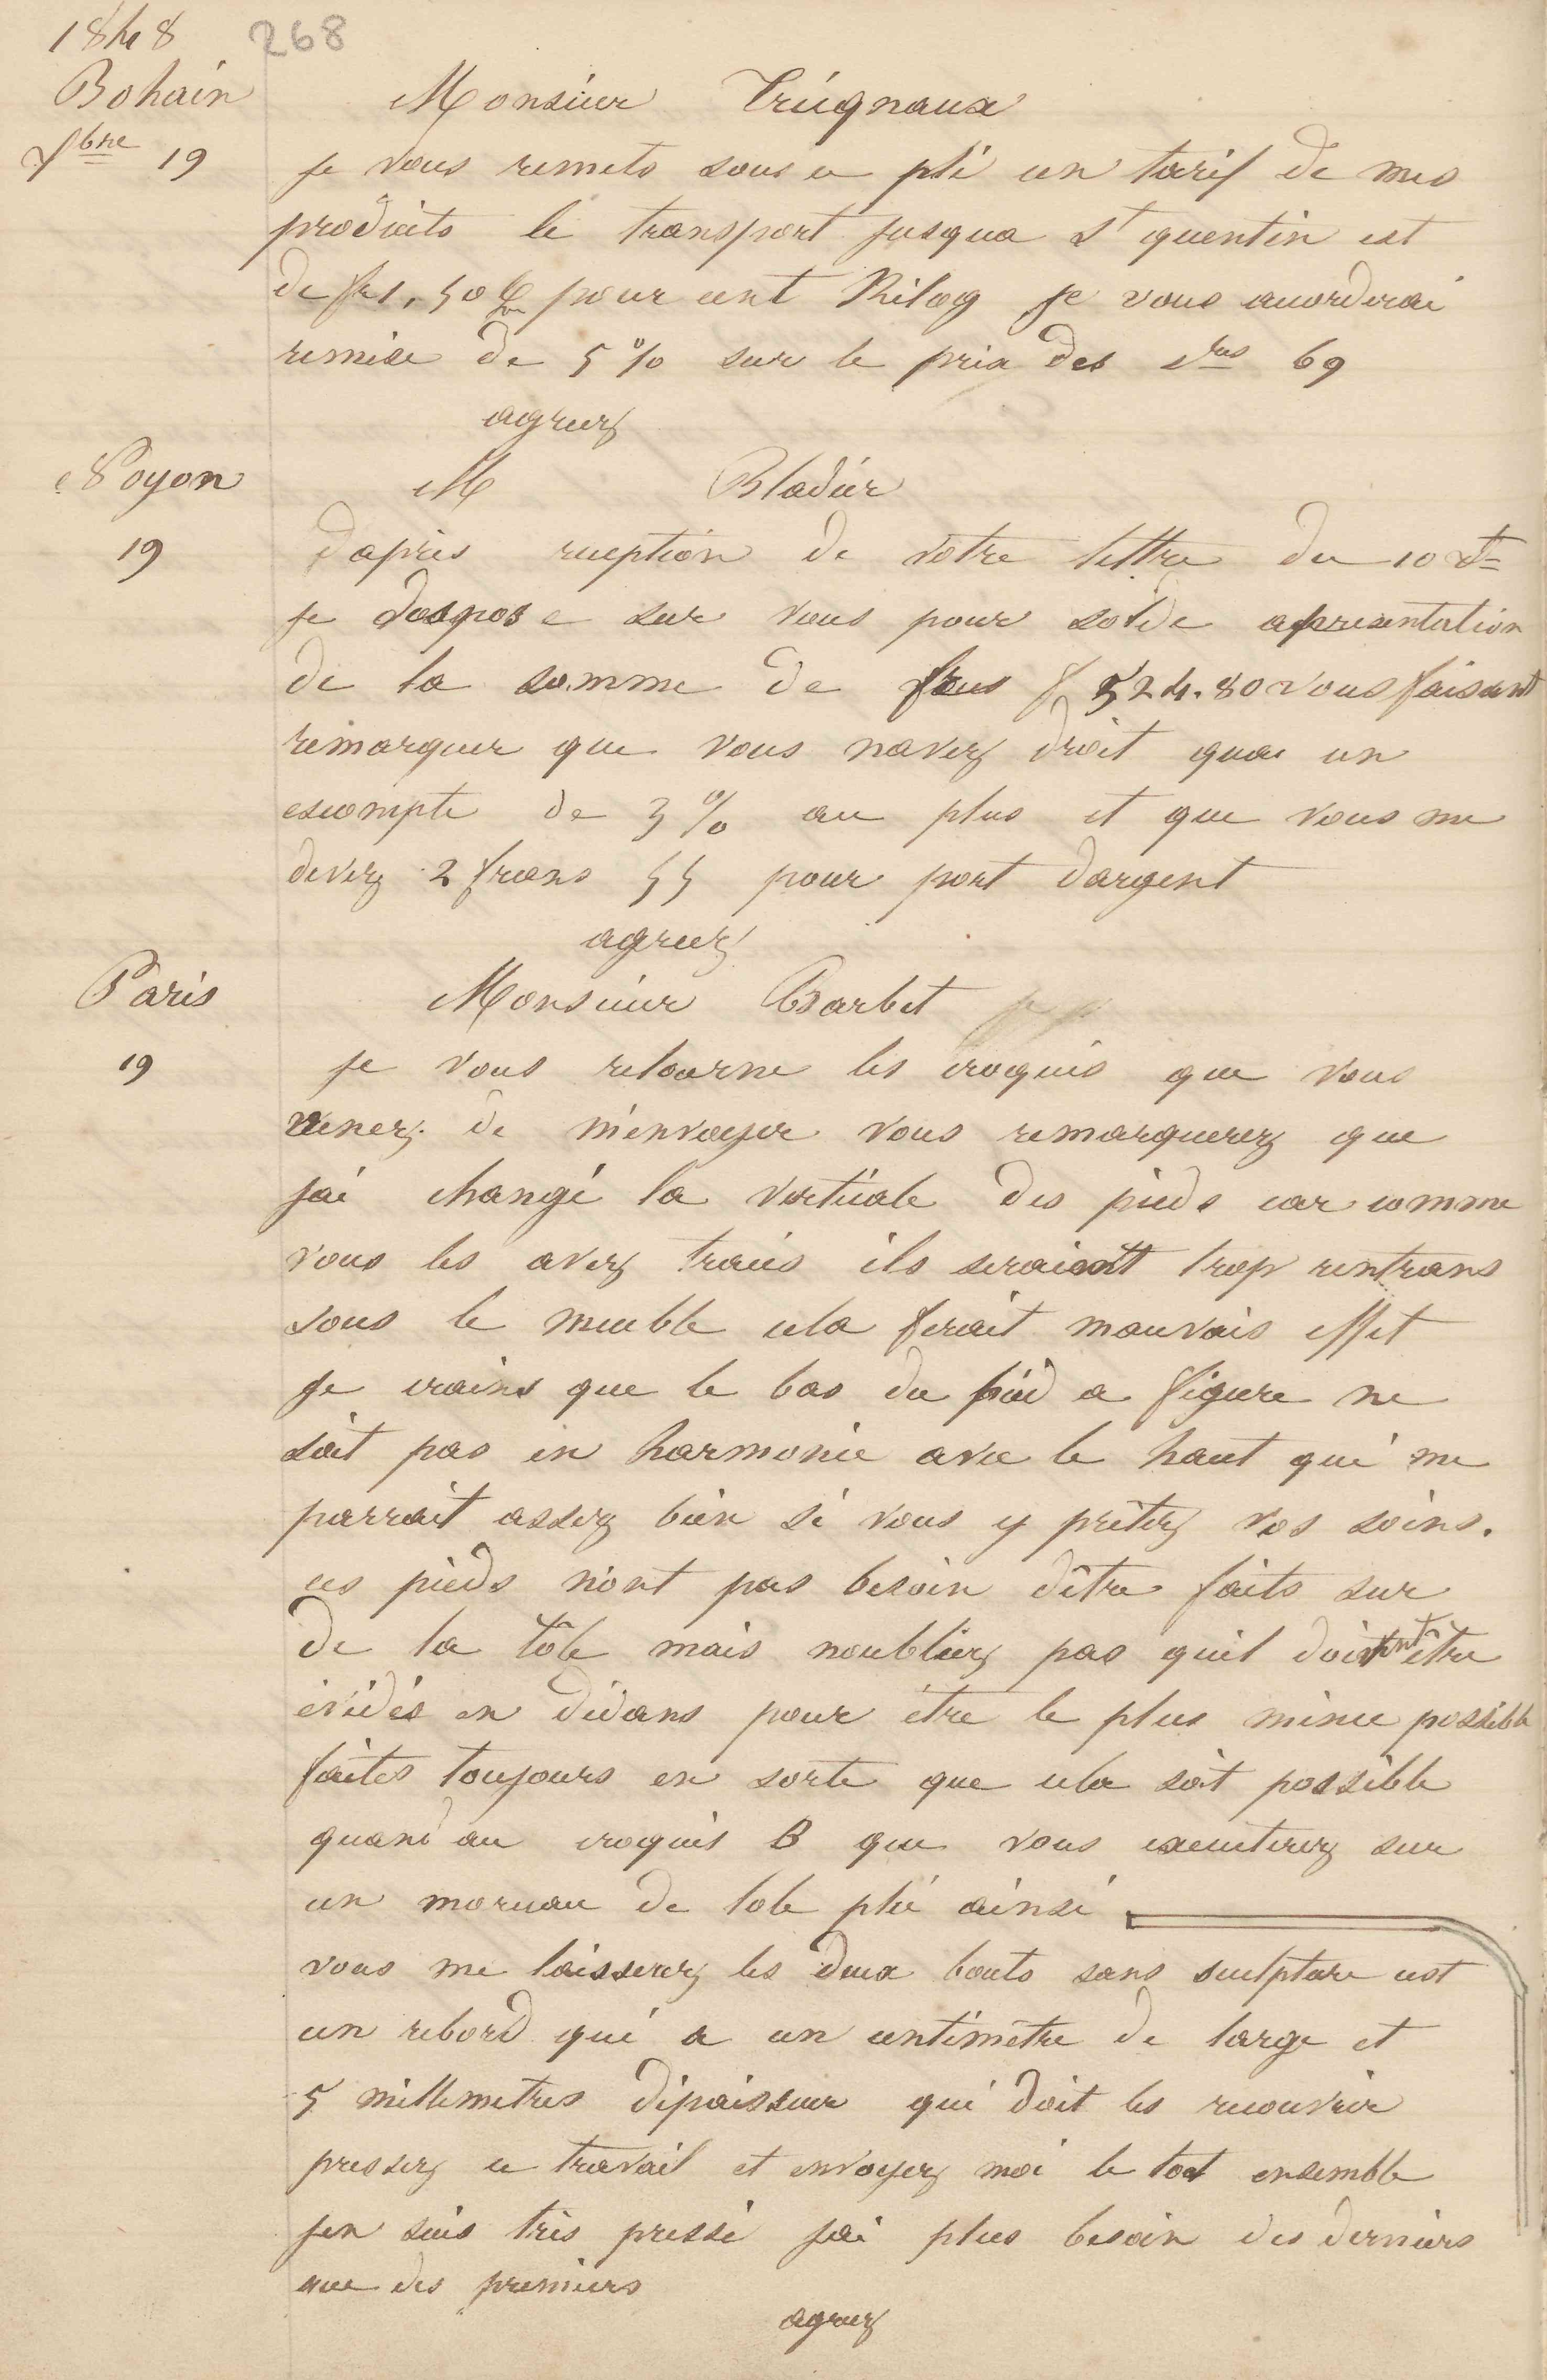 1848 268
Bohain
Monsieur Trûgnaux
Xbre 19 je vous remets sous ce pli un tarif de mes
produits le transport jusqua St quentin est
de fr 1,50 c pour cent Kilog je vous accorderai
remise de 5 % sur le prix des nros 69
agreez
Noyon M Bladier
19 dapres reception de votre lettre du 10 Ct
je dospose sur vous pour solde apresentation
de la somme de f 524.80 vous faisant
remarquer que vous navez droit qua un
escompte de 3 % au plus et que vous me
devez 2 francs 55 pour port dargent
agreez
Paris Monsieur Barbet
19 je vous retourne les croquis que vous
venez de m'envoyer vous remarquerez que
jai changé la verticale des pieds car comme
vous les avez tracés ils seraient trop rentrans
sous le meuble cela ferait mauvais effet
je crains que le bas du pied a figure ne
soit pas en harmonie avec le haut qui me
parrait assez bien si vous y prêtez vos soins.
ces pieds n'ont pas besoin d'être faits sur
de la tôle mais noubliez pas quil doivent être
évidés en dédans pour être le plus mince possible
faites toujours en sorte que cela soit possible
quand au croquis B que vous executerez sur
un morceau de tole plié ainsi
vous me laisserez les deux bouts sans sculpture cest
un rebord qui a un centimètre de large et
5 millemetres dépaisseur qui doit les recouvrir
pressez ce travail et envoyez moi le tout ensemble
jen suis très pressé jai plus besoin des derniers
que des premiers
agreez